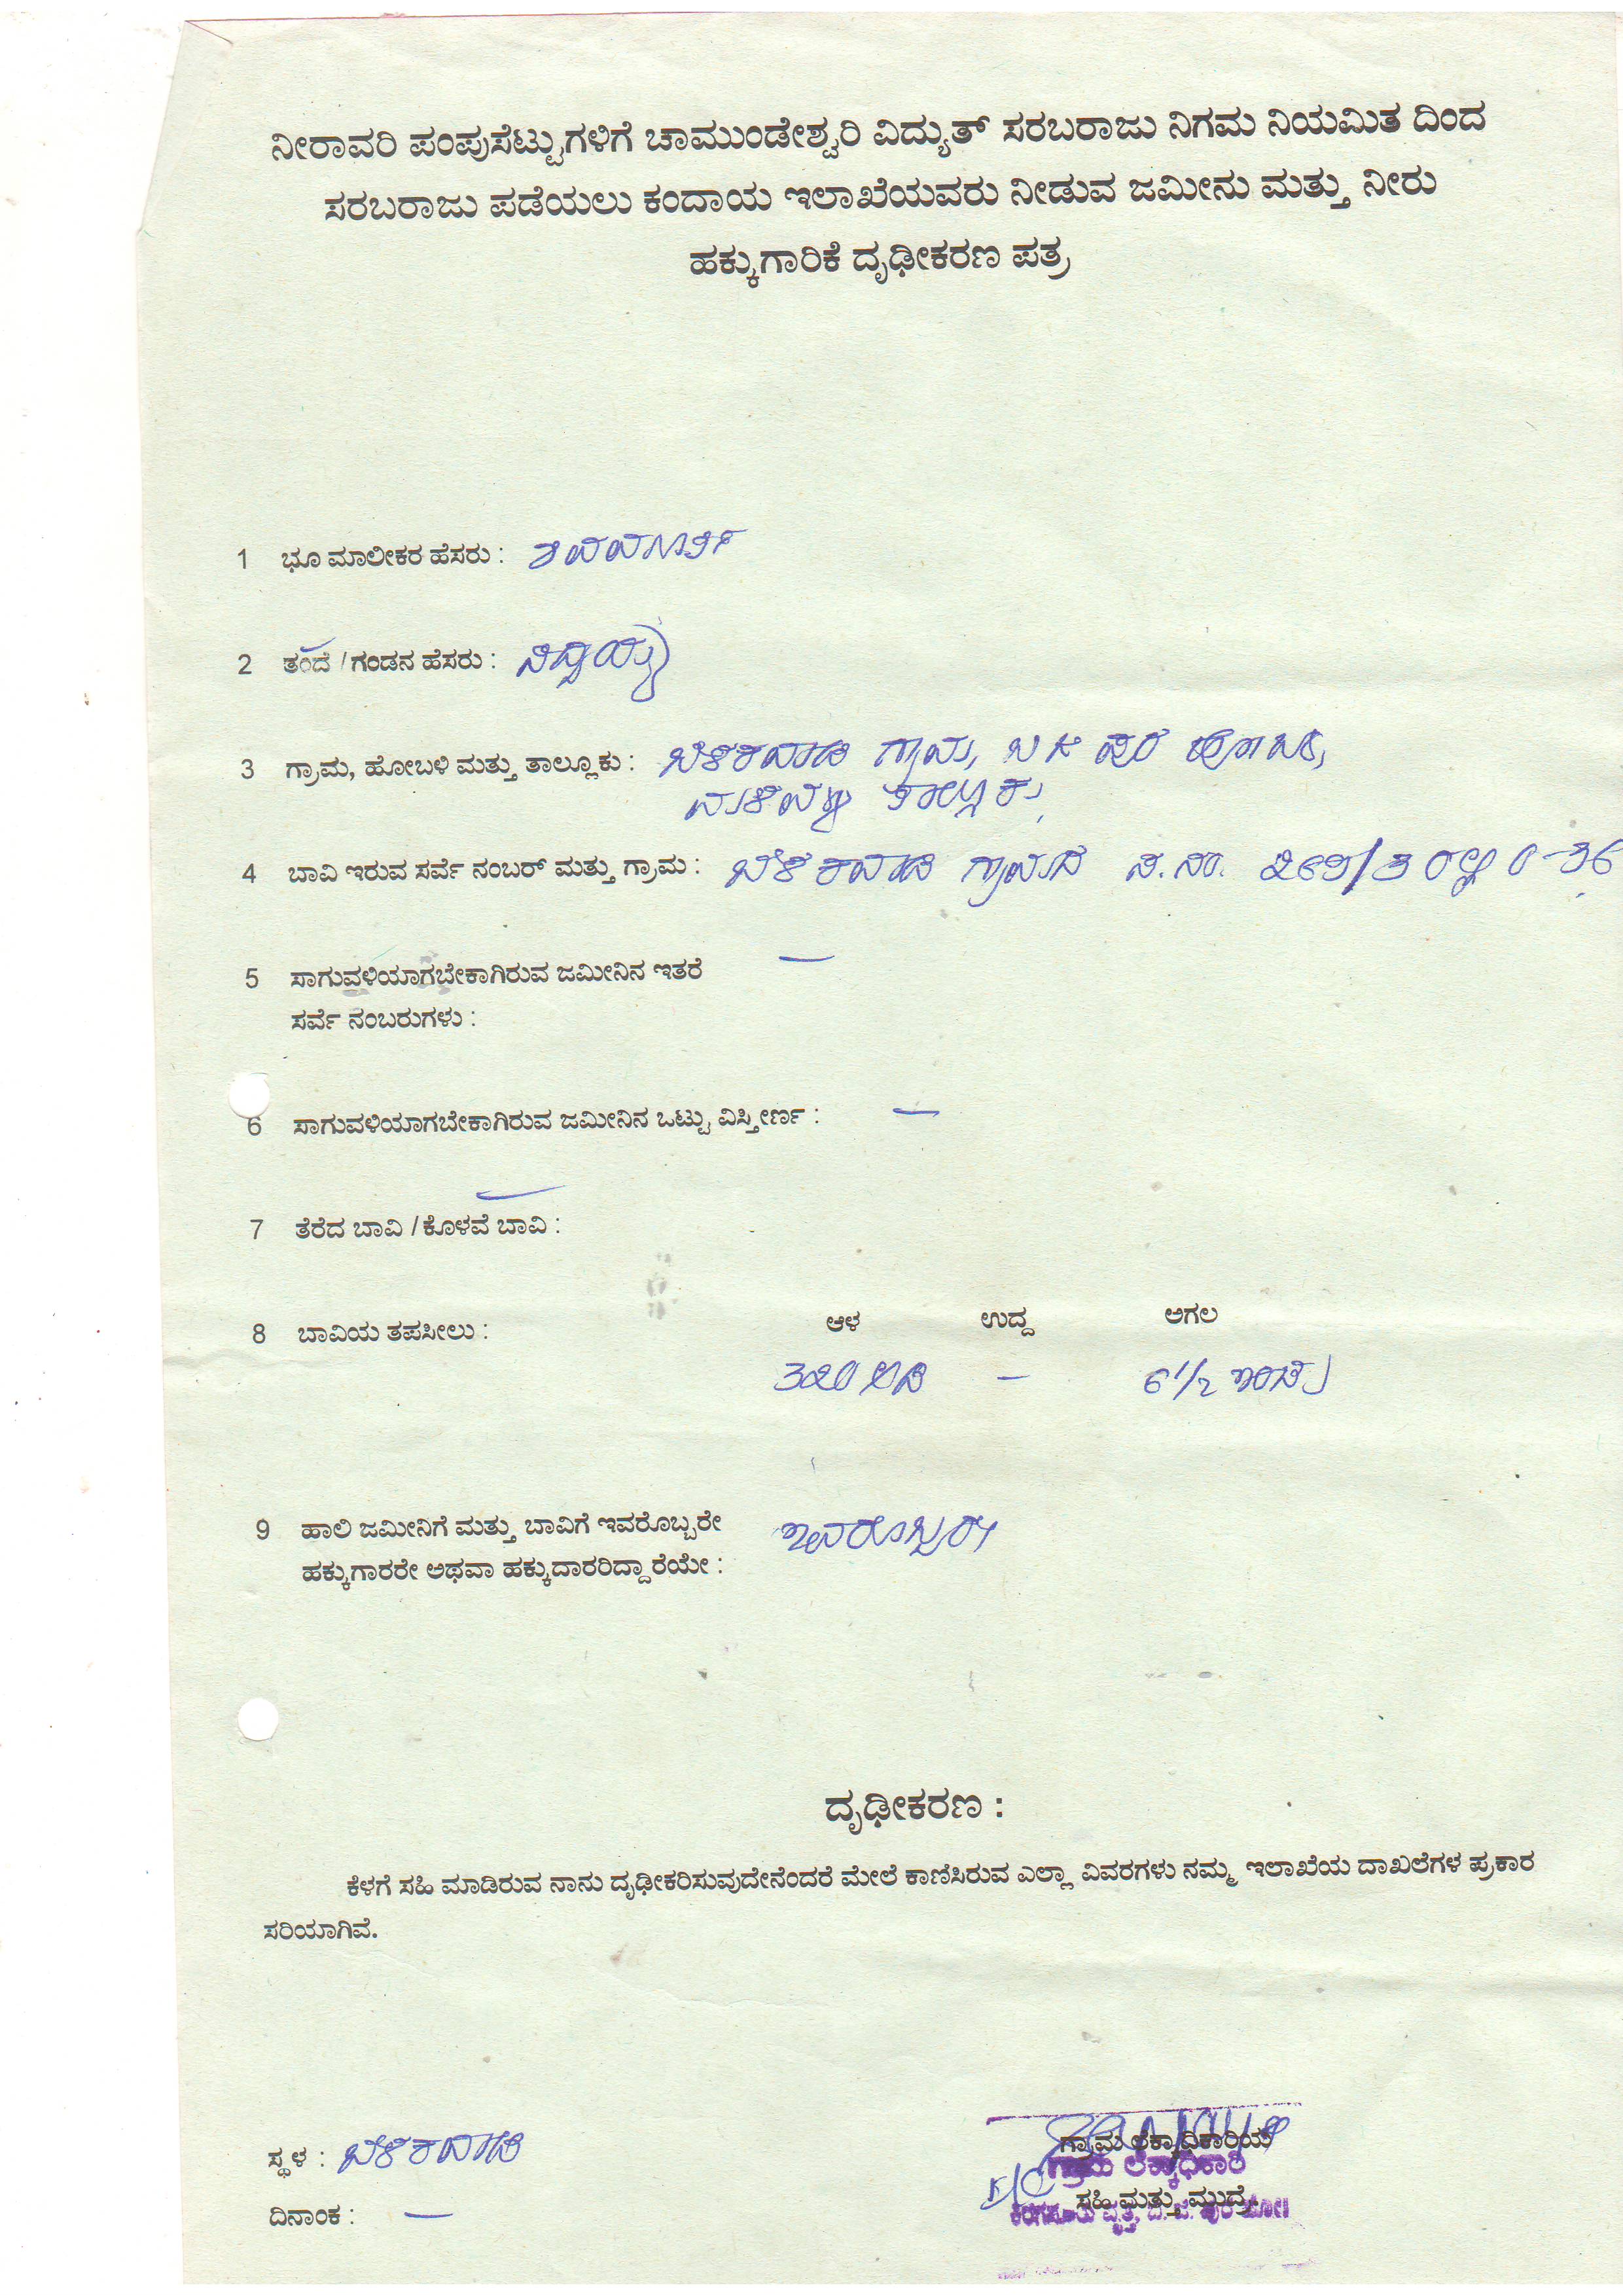 ನೀರಾವರಿ ಪಂಪುಸೆಟ್ಟುಗಳಿಗೆ ಚಾಮುಂಡೇಶ್ವರಿ ವಿದ್ಯುತ್ ಸರಬರಾಜು ನಿಗಮ ನಿಯಮಿತ ದಿಂದ
ಸರಬರಾಜು ಪಡೆಯಲು ಕಂದಾಯ ಇಲಾಖೆಯವರು ನೀಡುವ ಜಮೀನು ಮತ್ತು ನೀರು
ಹಕ್ಕುಗಾರಿಕೆ ದೃಢೀಕರಣ ಪತ್ರ
1 ಭೂ ಮಾಲೀಕರ ಹೆಸರು :
2 ತಂದೆ / ಗಂಡನ ಹೆಸರು : ಸಿದ್ದಯ್ಯ
3 ಗ್ರಾಮ, ಹೋಬಳಿ ಮತ್ತು ತಾಲ್ಲೂಕು : ಬೆಳಕವಾಡಿ ಗ್ರಾಮ, ಬಿ ಜಿ ಪುರ ಹೋಬಳಿ,
ಮಳವಳ್ಳಿ ತಾಲ್ಲೂಕು
4 ಬಾವಿ ಇರುವ ಸರ್ವೆ ನಂಬರ್ ಮತ್ತು ಗ್ರಾಮ : ಬೆಳಕವಾಡಿ ಗ್ರಾಮದ ಸ.ನಂ. 269/3 ರಲ್ಲಿ 0-36
5 ಸಾಗುವಳಿಯಾಗಬೇಕಾಗಿರುವ ಜಮೀನಿನ ಇತರೆ —
ಸರ್ವೆ ನಂಬರುಗಳು :
6 ಸಾಗುವಳಿಯಾಗಬೇಕಾಗಿರುವ ಜಮೀನಿನ ಒಟ್ಟು ವಿಸ್ತೀರ್ಣ : —
7 ತೆರೆದ ಬಾವಿ / ಕೊಳವೆ ಬಾವಿ :
8 ಬಾವಿಯ ತಪಸೀಲು : ಆಳ ಉದ್ದ ಅಗಲ
320 ಅಡಿ — 6 1/2 ಇಂಚು
9 ಹಾಲಿ ಜಮೀನಿಗೆ ಮತ್ತು ಬಾವಿಗೆ ಇವರೊಬ್ಬರೇ ಇವರೊಬ್ಬರೇ
ಹಕ್ಕುಗಾರರೇ ಅಥವಾ ಹಕ್ಕುದಾರರಿದ್ದಾರೆಯೇ :
ದೃಢೀಕರಣ :
ಕೆಳಗೆ ಸಹಿ ಮಾಡಿರುವ ನಾನು ದೃಢೀಕರಿಸುವುದೇನೆಂದರೆ ಮೇಲೆ ಕಾಣಿಸಿರುವ ಎಲ್ಲಾ ವಿವರಗಳು ನಮ್ಮ ಇಲಾಖೆಯ ದಾಖಲೆಗಳ ಪ್ರಕಾರ
ಸರಿಯಾಗಿವೆ.
ಸ್ಥಳ : ಬೆಳಕವಾಡಿ
ಗ್ರಾಮ ಲೆಕ್ಕಾಧಿಕಾರಿಯ
ಗ್ರಾಮ ಲೆಕ್ಕಾಧಿಕಾರಿ
ಸಹಿ ಮತ್ತು ಮುದ್ರೆ
ದಿನಾಂಕ : —